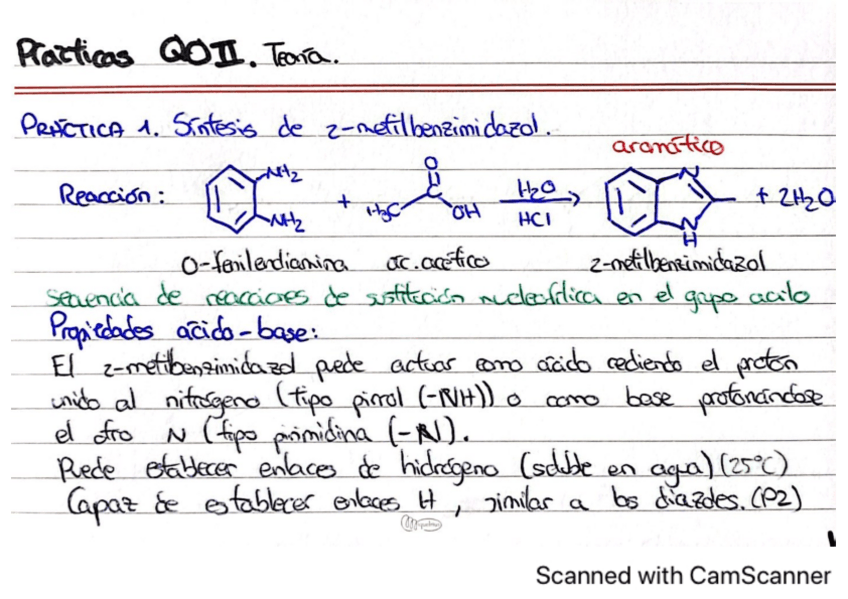 Prácticas QOII. Teoría.
PRÁCTICA 1. Síntesis de 2-metilbenzimidazol.
aromático
Reacción: NH2 NH2 + H3C O OH H2O HCl N N H + 2H2O
O-fenilendiamina ác. acético 2-metilbenzimidazol
secuencia de reacciones de sustitución nucleofílica en el grupo acilo
Propiedades ácido-base:
El 2-metilbenzimidazol puede actuar como ácido cediendo el protón
unido al nitrógeno (tipo pirrol (-NH)) o como base protonándose
el otro N (tipo pirimidina (-N).
Puede establecer enlaces de hidrógeno (soluble en agua) (25°C)
Capaz de establecer enlaces H, similar a los diazoles. (P2)
Scanned with CamScanner